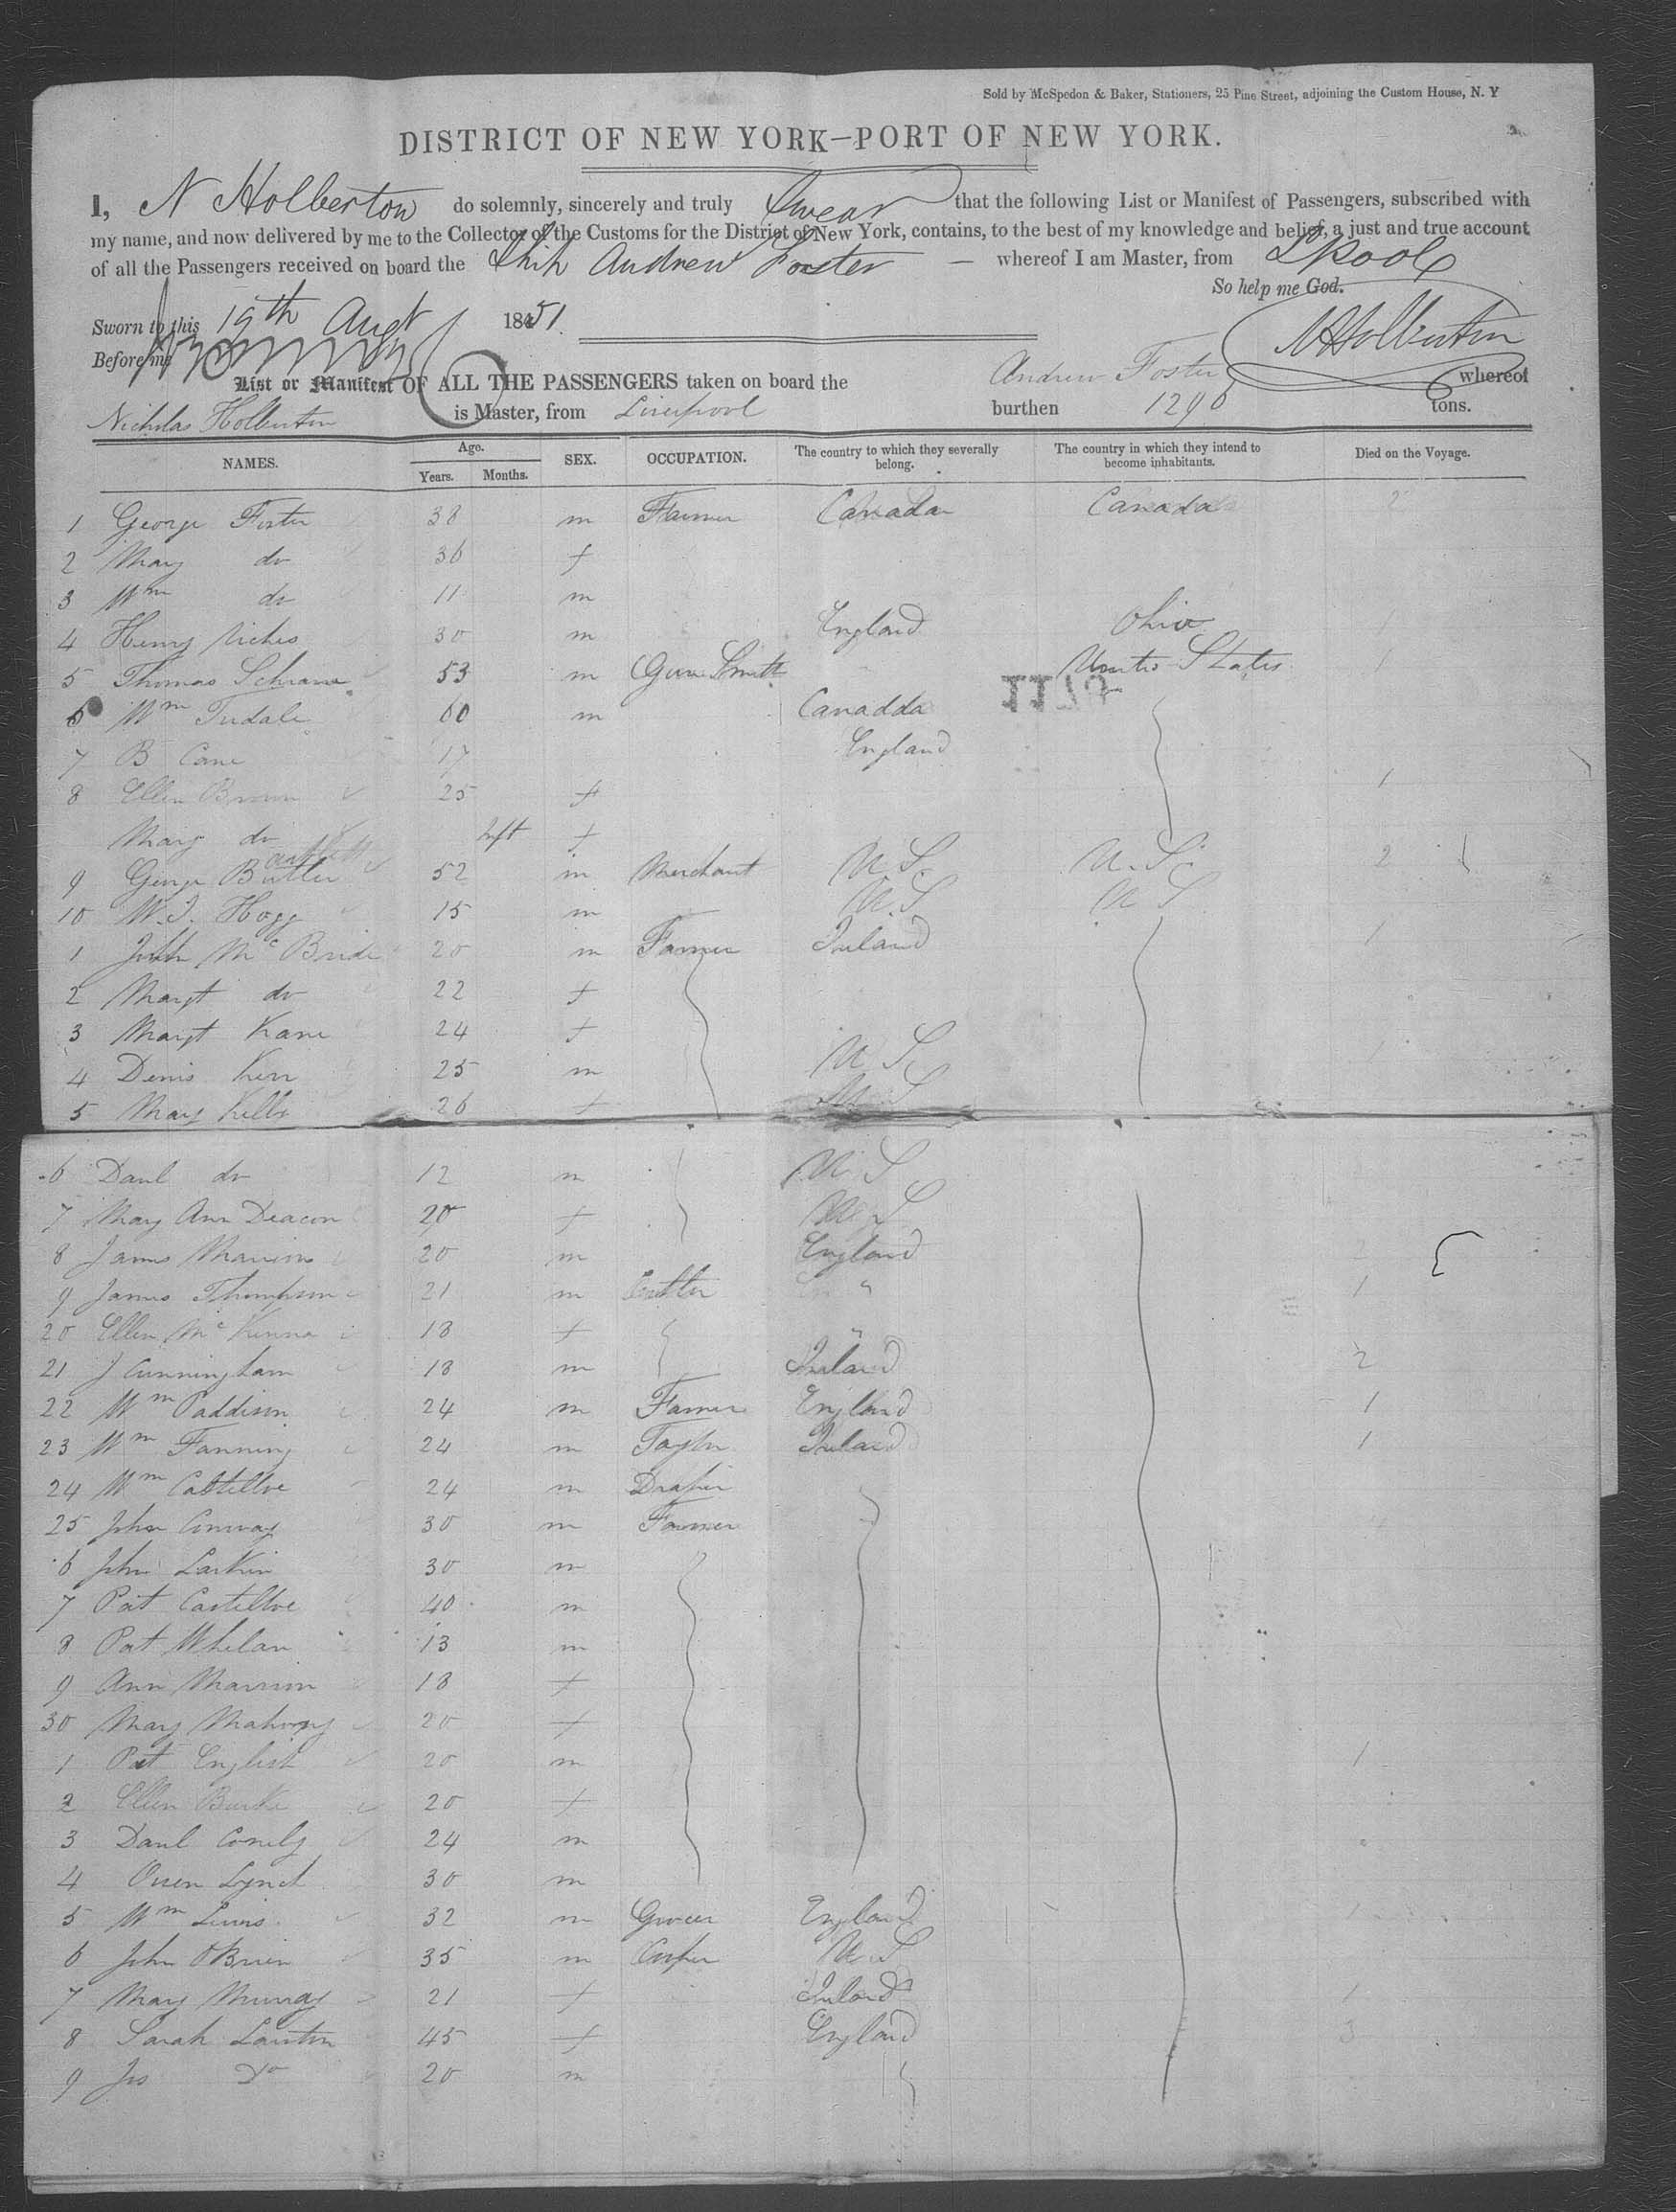 Sold by McSpedon & Baker, Stationers, 25 Pine Street, adjoining the Custom House, N. Y
DISTRICT OF NEW YORK—PORT OF NEW YORK.
I, N Holberton do solemnly, sincerely and truly Swear that the following List or Manifest of Passengers, subscribed with
my name, and now delivered by me to the Collector of the Customs for the District of New York, contains, to the best of my knowledge and belief, a just and true account
of all the Passengers received on board the Ship Andrew Foster — whereof I am Master, from Lpool
So help me God.
Sworn to this 19th Augt 1851.
N Holberton
Before me
List or Manifest OF ALL THE PASSENGERS taken on board the Andrew Foster whereof
Nicholas Holberton is Master, from Liverpool burthen 1290 tons.
NAMES. Age. Years. Months. SEX. OCCUPATION. The country to which they severally belong. The country in which they intend to become inhabitants. Died on the Voyage.
1 George Foster 38 m Farmer Canada Canada 2
2 Mary do 36 f
3 Wm do 11 m
4 Henry 30 m England Ohio 1
5 Thomas 53 m Gun Smith States 1
6 Wm 60 m Canadda
1179
7 B Cane 17 England
8 Ellen Brown 25 f 1
Mary do Inft f
9 George Butler 52 m Merchant U.S. U.S. 2
10 W.J. Hogg 15 m U.S U S
1 John McBride 20 m Farmer Ireland 1
2 Margt do 22 f
3 Margt Kane 24 f
4 Denis Kerr 25 m U S
5 Mary Kelly 26 f U S
6 Danl do 12 m U S
7 Mary Ann Deacon 20 f U S
8 James 20 m England 2
9 James Thompson 21 m 1
20 Ellen McKenna 18 f "
21 J Cunningham 18 m Ireland 2
22 Wm Paddison 24 m Farmer England 1
23 Wm Fanning 24 m Taylor Ireland 1
24 Wm Costelloe 24 m Draper
25 John Conway 30 m Farmer
6 John Larkin 30 m
7 Pat Costelloe 40 m
8 Pat Whelan 13 m
9 Ann 18 f
30 Mary Mahony 20 f
1 Pat English 20 m 1
2 Ellen Burke 20 f
3 Danl Conely 24 m
4 Owen Lynch 30 m
5 Wm Lewis 32 m Grocer England 1
6 John OBrien 35 m Cooper U S
7 Mary Murray 21 f Ireland 1
8 Sarah 45 f England 3
9 Jas Do 20 m